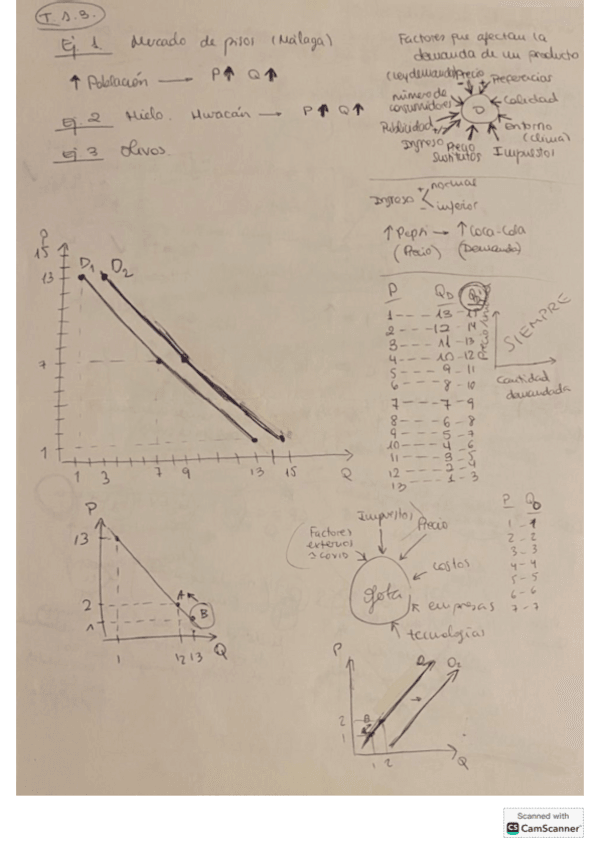 T.S.3.
Ej 1. Mercado de pisos (Málaga)
↑ Población → P↑ Q↑
Ej. 2 Hielo. Huracán → P↑ Q↑
Ej 3 Olivos.
Factores que afectan la
demanda de un producto
(Ley demanda) Precio
Calidad
número de
consumidores
D
Publicidad
Entorno
(clima)
Ingreso
Precio
Sustitutos
Impuestos
Ingreso + normal
- inferior
↑ Pepsi → ↑ Coca-Cola
(Precio) (Demanda)
P
15
13
7
1
D1 D2
1 3 7 9 13 15 Q
P QD
1 --- 13 - 15
2 --- 12 - 14
3 --- 11 - 13
4 --- 10 - 12
5 --- 9 - 11
6 --- 8 - 10
7 --- 7 - 9
8 --- 6 - 8
9 --- 5 - 7
10 --- 4 - 6
11 --- 3 - 5
12 --- 2 - 4
13 --- 1 - 3
SIEMPRE
Cantidad
demandada
P
13
2
1
A
B
1 12 13 Q
Impuestos
Precio
Factores
externos
costos
empresas
tecnologías
P QO
1 - 1
2 - 2
3 - 3
4 - 4
5 - 5
6 - 6
7 - 7
P
O2
2
1
B
1 2 Q
Scanned with
CS CamScanner